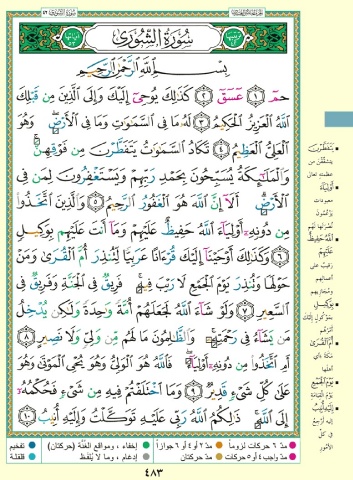 سُورَةُ الشُّورَىٰ
بِسْمِ اللَّهِ الرَّحْمَٰنِ الرَّحِيمِ
حمٓ ١ عٓسٓقٓ ٢ كَذَٰلِكَ يُوحِىٓ إِلَيْكَ وَإِلَى الَّذِينَ مِن قَبْلِكَ
اللَّهُ الْعَزِيزُ الْحَكِيمُ ٣ لَهُۥ مَا فِى السَّمَٰوَٰتِ وَمَا فِى الْأَرْضِ ۖ وَهُوَ
الْعَلِىُّ الْعَظِيمُ ٤ تَكَادُ السَّمَٰوَٰتُ يَتَفَطَّرْنَ مِن فَوْقِهِنَّ ۚ
وَالْمَلَٰٓئِكَةُ يُسَبِّحُونَ بِحَمْدِ رَبِّهِمْ وَيَسْتَغْفِرُونَ لِمَن فِى
الْأَرْضِ ۗ أَلَآ إِنَّ اللَّهَ هُوَ الْغَفُورُ الرَّحِيمُ ٥ وَالَّذِينَ اتَّخَذُوا۟
مِن دُونِهِۦٓ أَوْلِيَآءَ اللَّهُ حَفِيظٌ عَلَيْهِمْ وَمَآ أَنتَ عَلَيْهِم بِوَكِيلٍ
٦ وَكَذَٰلِكَ أَوْحَيْنَآ إِلَيْكَ قُرْءَانًا عَرَبِيًّا لِّتُنذِرَ أُمَّ الْقُرَىٰ وَمَنْ
حَوْلَهَا وَتُنذِرَ يَوْمَ الْجَمْعِ لَا رَيْبَ فِيهِ ۚ فَرِيقٌ فِى الْجَنَّةِ وَفَرِيقٌ فِى
السَّعِيرِ ٧ وَلَوْ شَآءَ اللَّهُ لَجَعَلَهُمْ أُمَّةً وَٰحِدَةً وَلَٰكِن يُدْخِلُ
مَن يَشَآءُ فِى رَحْمَتِهِۦ ۚ وَالظَّٰلِمُونَ مَا لَهُم مِّن وَلِىٍّ وَلَا نَصِيرٍ ٨
أَمِ اتَّخَذُوا۟ مِن دُونِهِۦٓ أَوْلِيَآءَ ۖ فَاللَّهُ هُوَ الْوَلِىُّ وَهُوَ يُحْىِ الْمَوْتَىٰ وَهُوَ
عَلَىٰ كُلِّ شَىْءٍ قَدِيرٌ ٩ وَمَا اخْتَلَفْتُمْ فِيهِ مِن شَىْءٍ فَحُكْمُهُۥٓ
إِلَى اللَّهِ ۚ ذَٰلِكُمُ اللَّهُ رَبِّى عَلَيْهِ تَوَكَّلْتُ وَإِلَيْهِ أُنِيبُ ١٠
يَتَفَطَّرْنَ
يتشقّقن من
عظمته تعالى
أَوْلِيَآءَ
معبودات
يزعمون
نُصرتها لهم
اللَّهُ حَفِيظٌ
عَلَيْهِمْ
رقيب على
أعمالهم
ومجازيهم
بِوَكِيلٍ
بموكول إليك
أمرهم
أُمَّ الْقُرَىٰ
مكّة؛ أي
أهلها
يَوْمَ الْجَمْعِ
يوم القيامة
إِلَيْهِ أُنِيبُ
إليه أرجع
في كلّ
الأمور
مدّ ٦ حركات لزوماً مدّ ٢ أو ٤ أو ٦ جوازاً إخفاء، ومواقع الغُنّة (حركتان) تفخيم
مدّ واجب ٤ أو ٥ حركات مدّ حركتان إدغام، وما لا يُلفَظ قلقلة
٤٨٣